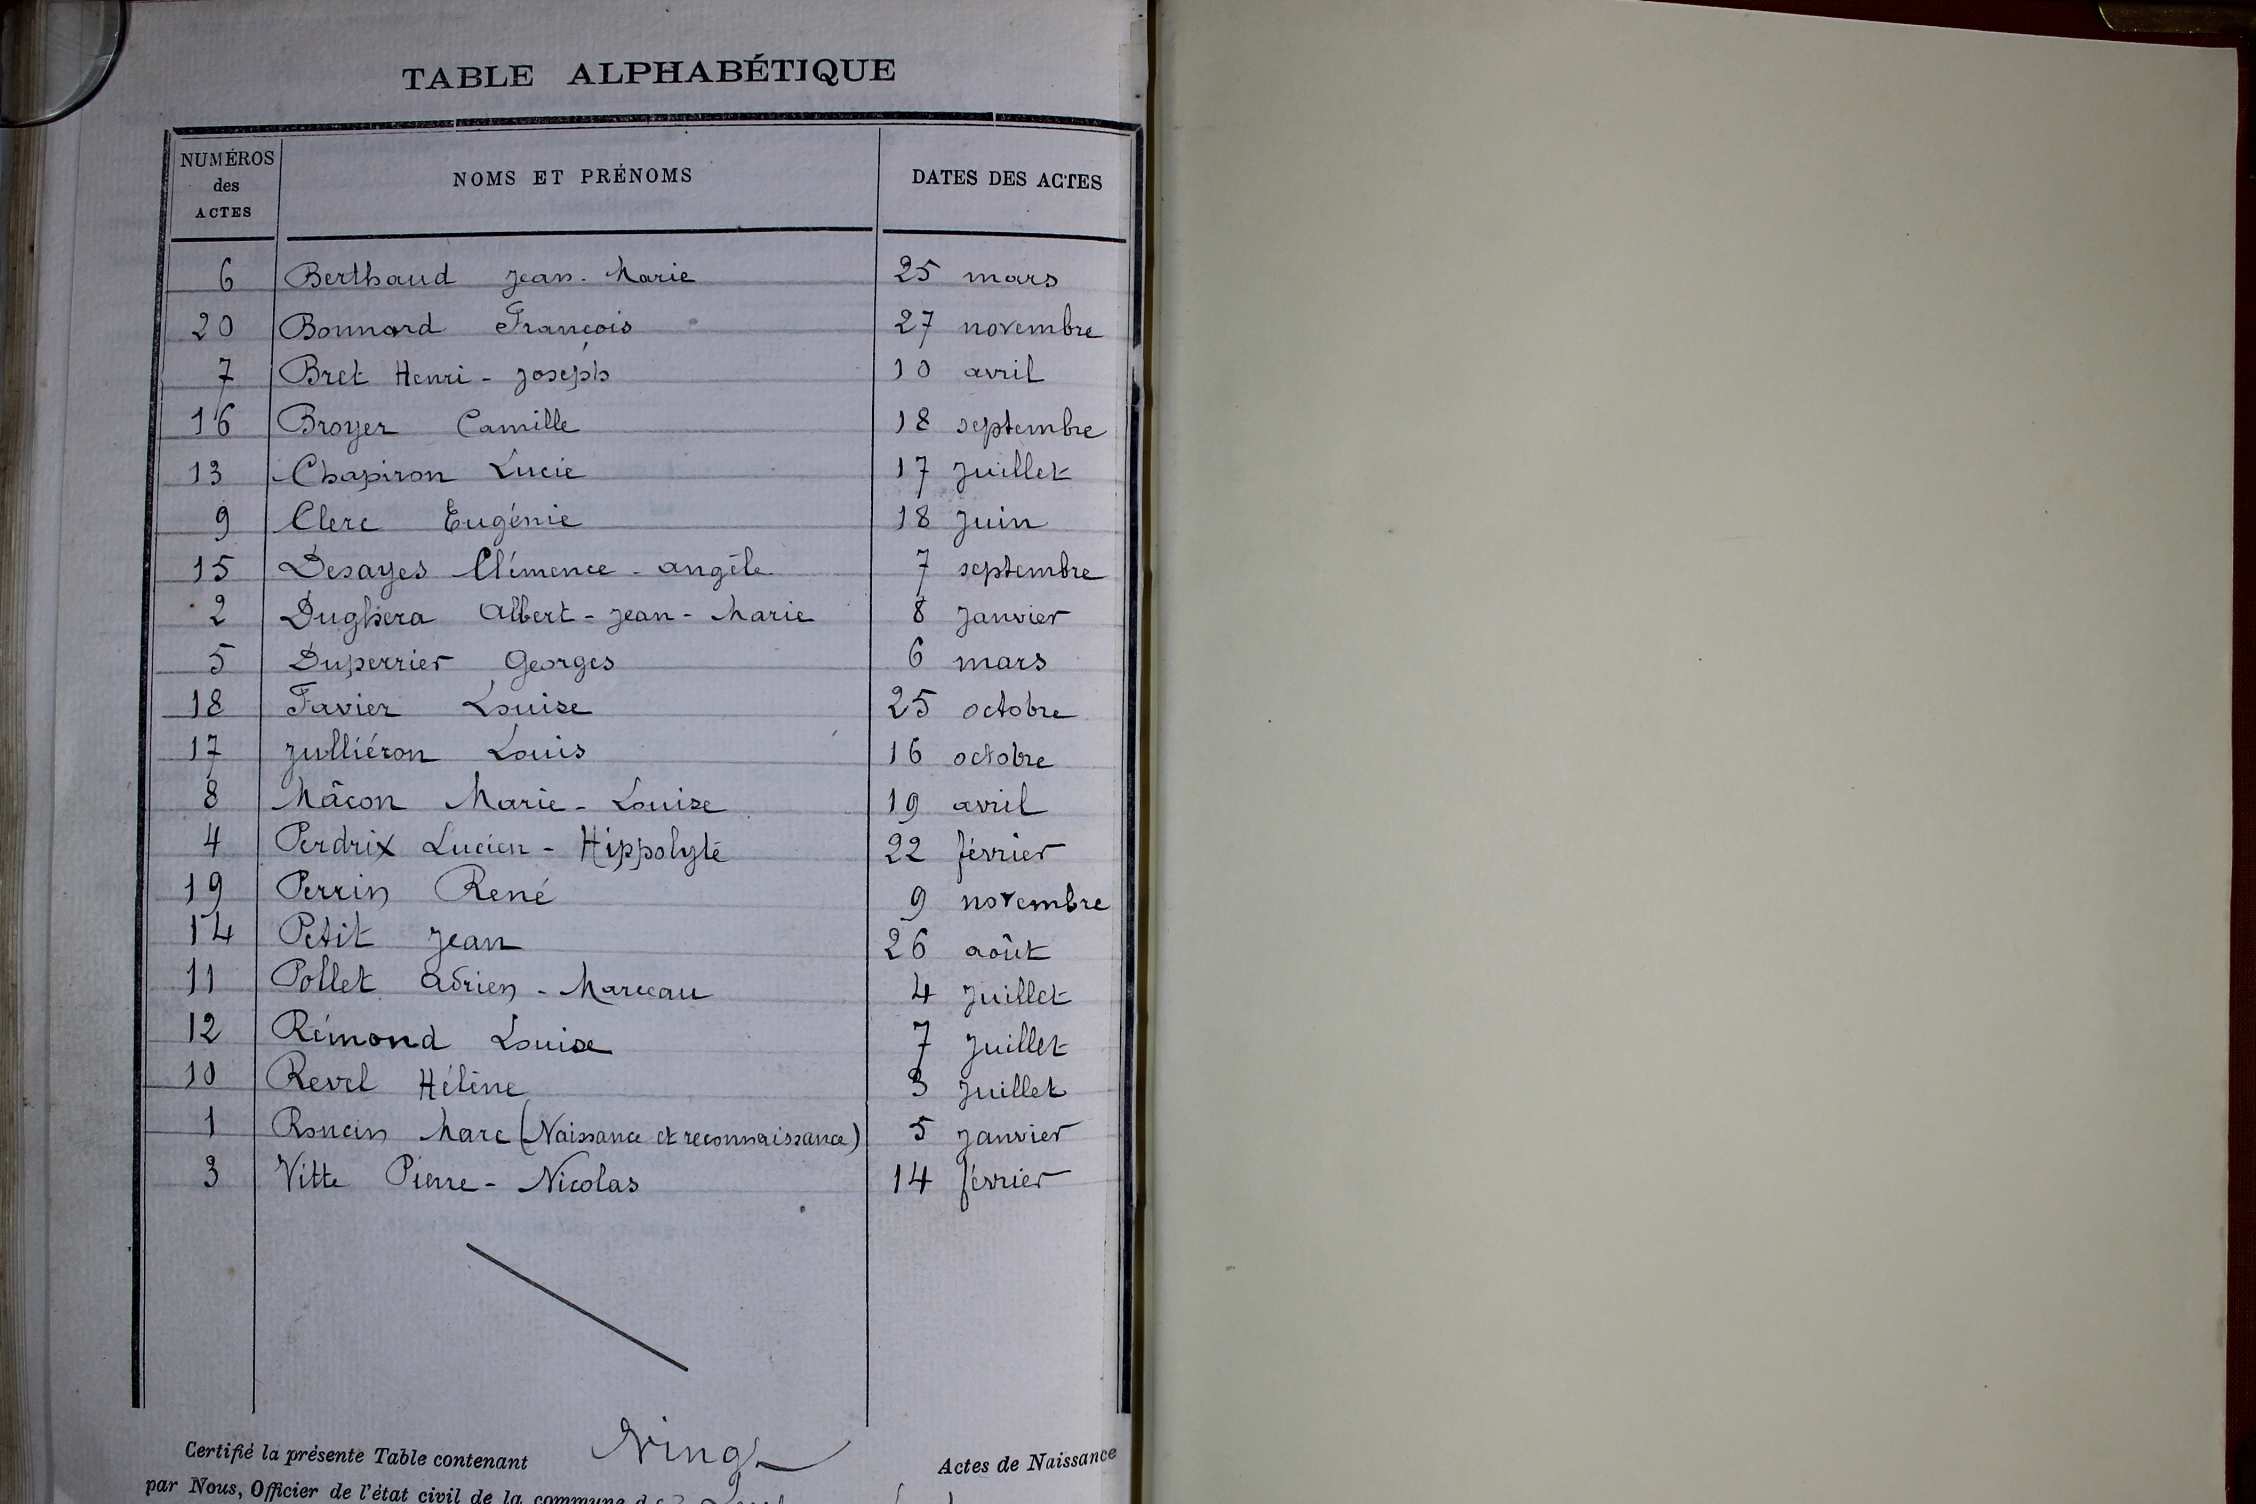 TABLE ALPHABÉTIQUE
NUMÉROS des ACTES NOMS ET PRÉNOMS DATES DES ACTES
6 Berthaud Jean-Marie 25 mars
20 Bonnard François 27 novembre
7 Bret Henri-Joseph 10 avril
16 Broyer Camille 18 septembre
13 Chapiron Lucie 17 Juillet
9 Clerc Eugénie 18 Juin
15 Desayes Clémence-angèle 7 septembre
2 Dughera Albert-Jean-Marie 8 Janvier
5 Duperrier Georges 6 mars
18 Favier Louise 25 octobre
17 Julliéron Louis 16 octobre
8 Mâcon Marie-Louise 19 avril
4 Perdrix Lucien-Hippolyte 22 février
19 Perrin René 9 novembre
14 Petit Jean 26 août
11 Pollet Adrien-Marceau 4 Juillet
12 Rémond Louise 7 Juillet
10 Revel Hélène 3 Juillet
1 Roncin Marc (Naissance et reconnaissance) 5 Janvier
3 Vitte Pierre-Nicolas 14 février
Certifié la présente Table contenant Vingt Actes de Naissance
par Nous, Officier de l'état civil de la commune